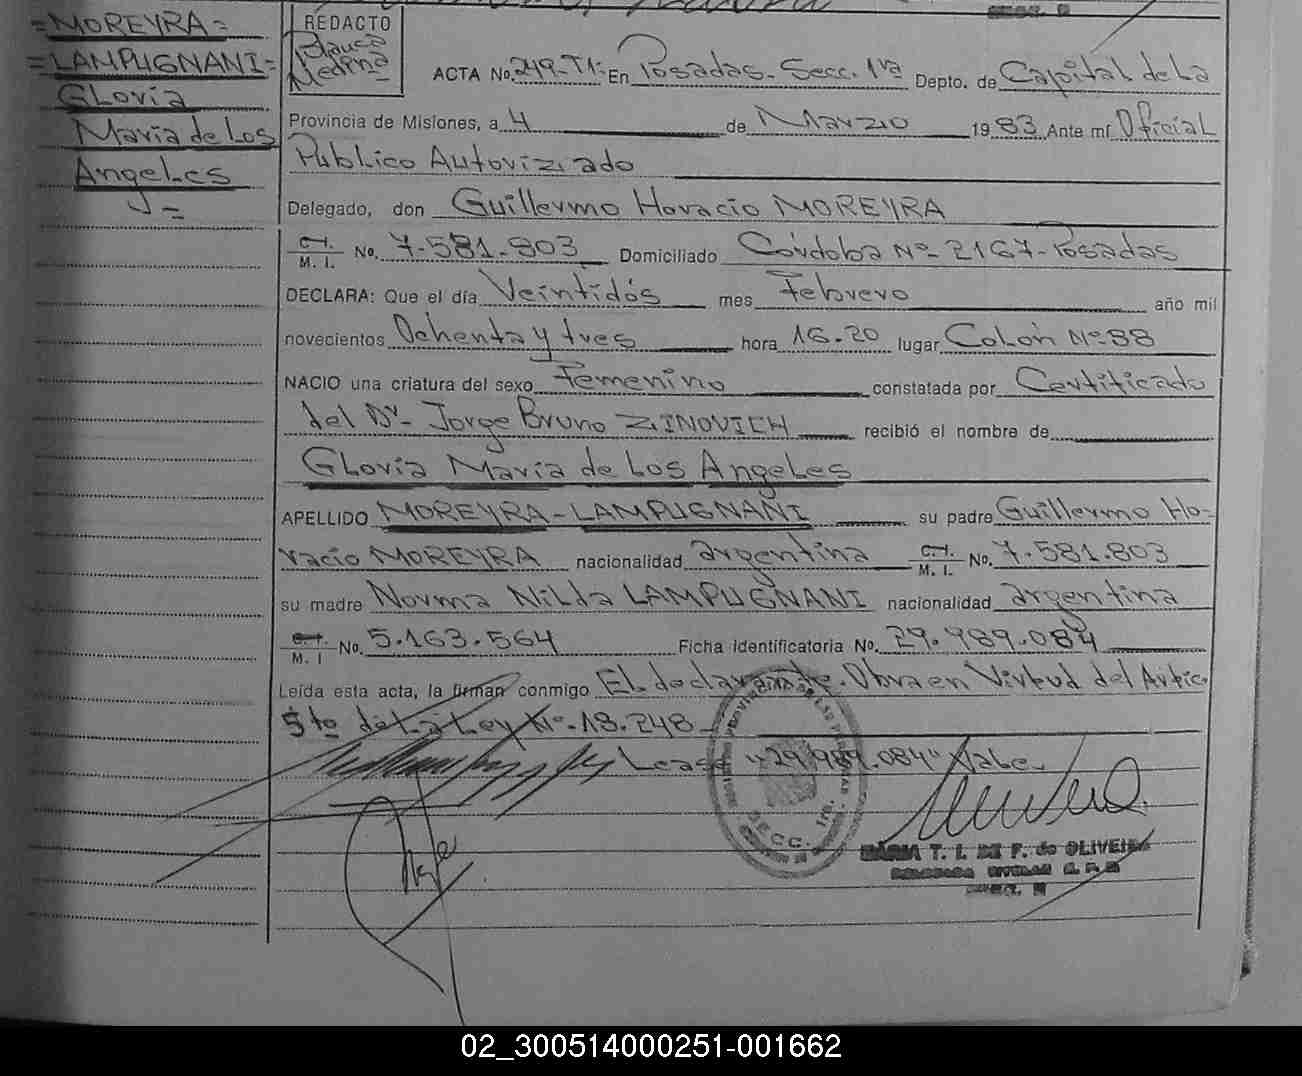 =MOREYRA=
=LAMPUGNANI=
Gloria
María de Los
Angeles
=
REDACTO
Blanca
Medina
ACTA No. 249-T1- En Posadas- Secc. 1ra Depto. de Capital de La
Provincia de Misiones, a 4 de Marzo 1983 Ante mí Oficial
Publico Autorizado
Delegado, don Guillermo Horacio MOREYRA
C. I.
M. I. No. 7.581.803 Domiciliado Córdoba Nº- 2167-Posadas
DECLARA: Que el día Veintidós mes Febrero año mil
novecientos Ochenta y tres hora 16.20 lugar Colón Nº 88
NACIO una criatura del sexo Femenino constatada por Certificado
del Dr- Jorge Bruno ZINOVICH recibió el nombre de
Gloria María de Los Angeles
APELLIDO MOREYRA-LAMPUGNANI su padre Guillermo Ho-
racio MOREYRA nacionalidad argentina C. I.
M. I. No. 7.581.803
su madre Norma Nilda LAMPUGNANI nacionalidad argentina
C. I.
M. I No. 5.163.564 Ficha identificatoria No. 29.989.084
Leída esta acta, la firman conmigo EL declarante. Obra en Virtud del Artíc.
5to de La Ley Nº- 18.248
Lease "29.989.084" Vale.
SECC. 1ra.
MARIA T. I. DE F. de OLIVEIRA
DELEGADA TITULAR R. P. P.
02_300514000251-001662